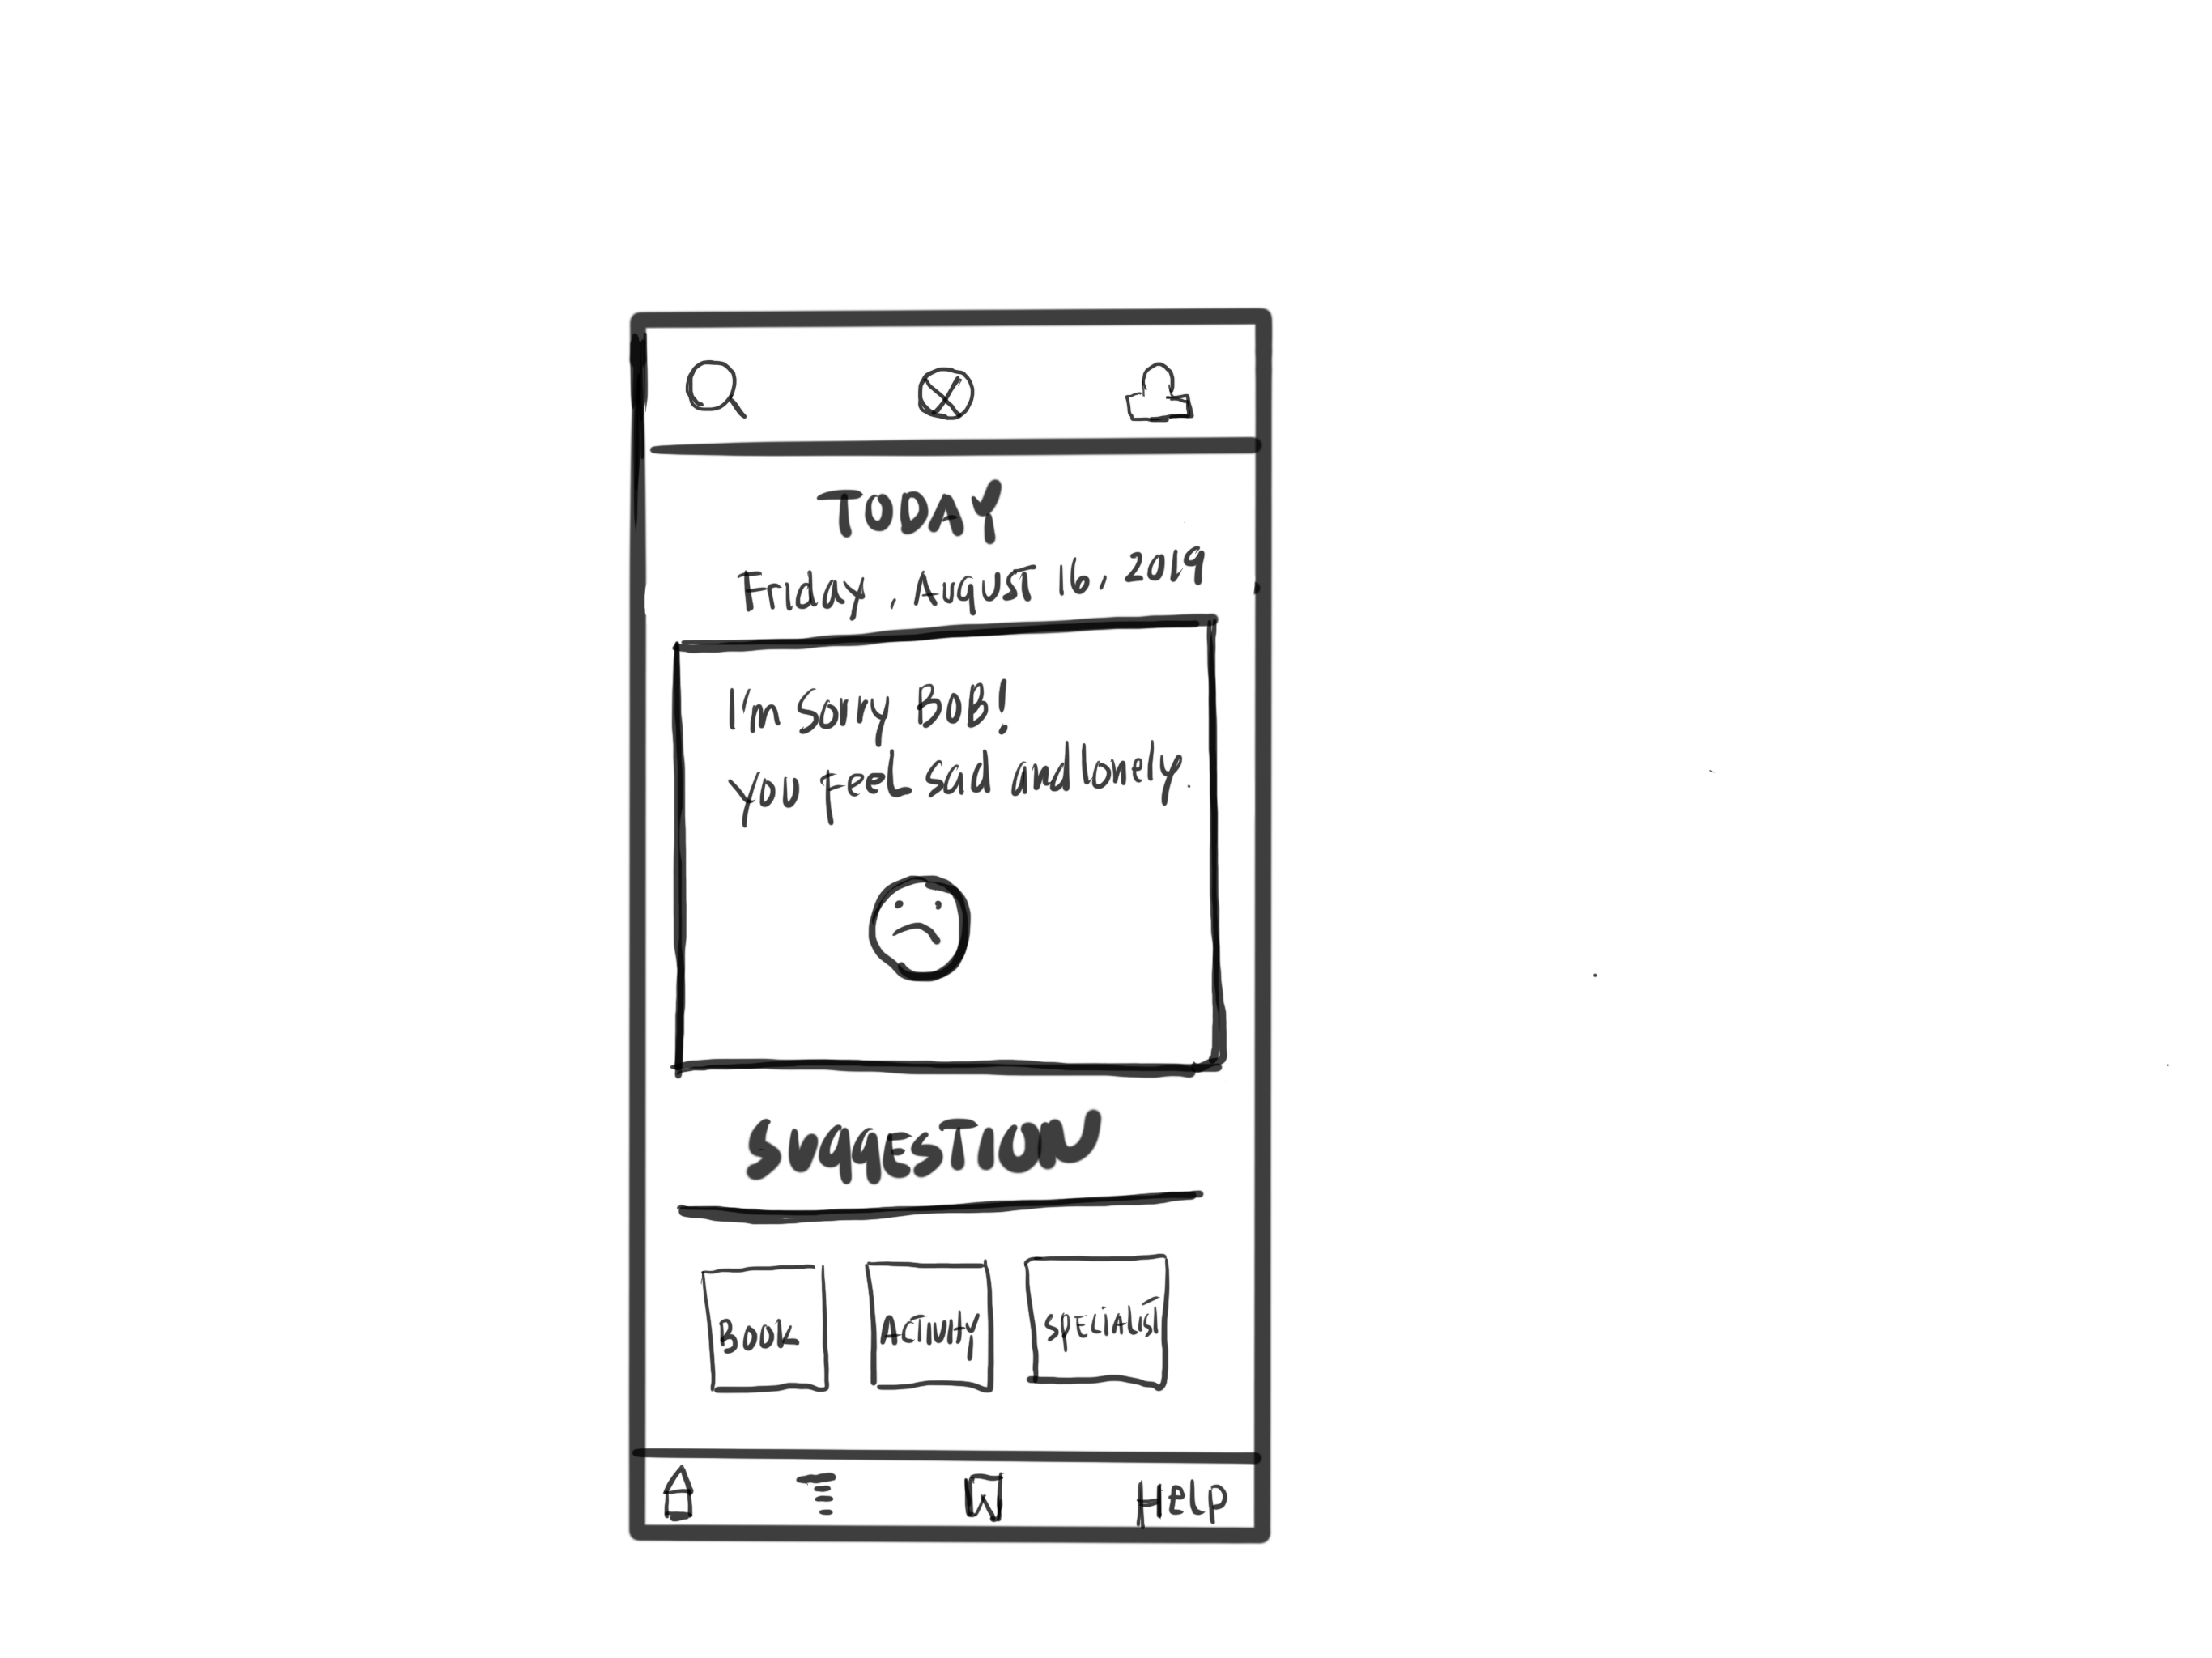 TODAY
Friday, August 16, 2019
I'm sorry BOB!
You feel sad and lonely.
SUGGESTION
BOOK ACTIVITY SPECIALIST
Help